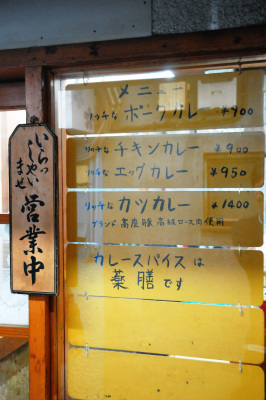 いらっ
しゃい
ませ
営業中
メニュー
リッチな ポークカレー ¥900
リッチな チキンカレー ¥900
リッチな エッグカレー ¥950
リッチな カツカレー ¥1400
ブランド 高座豚 高級ロース肉使用
カレースパイスは
薬膳です